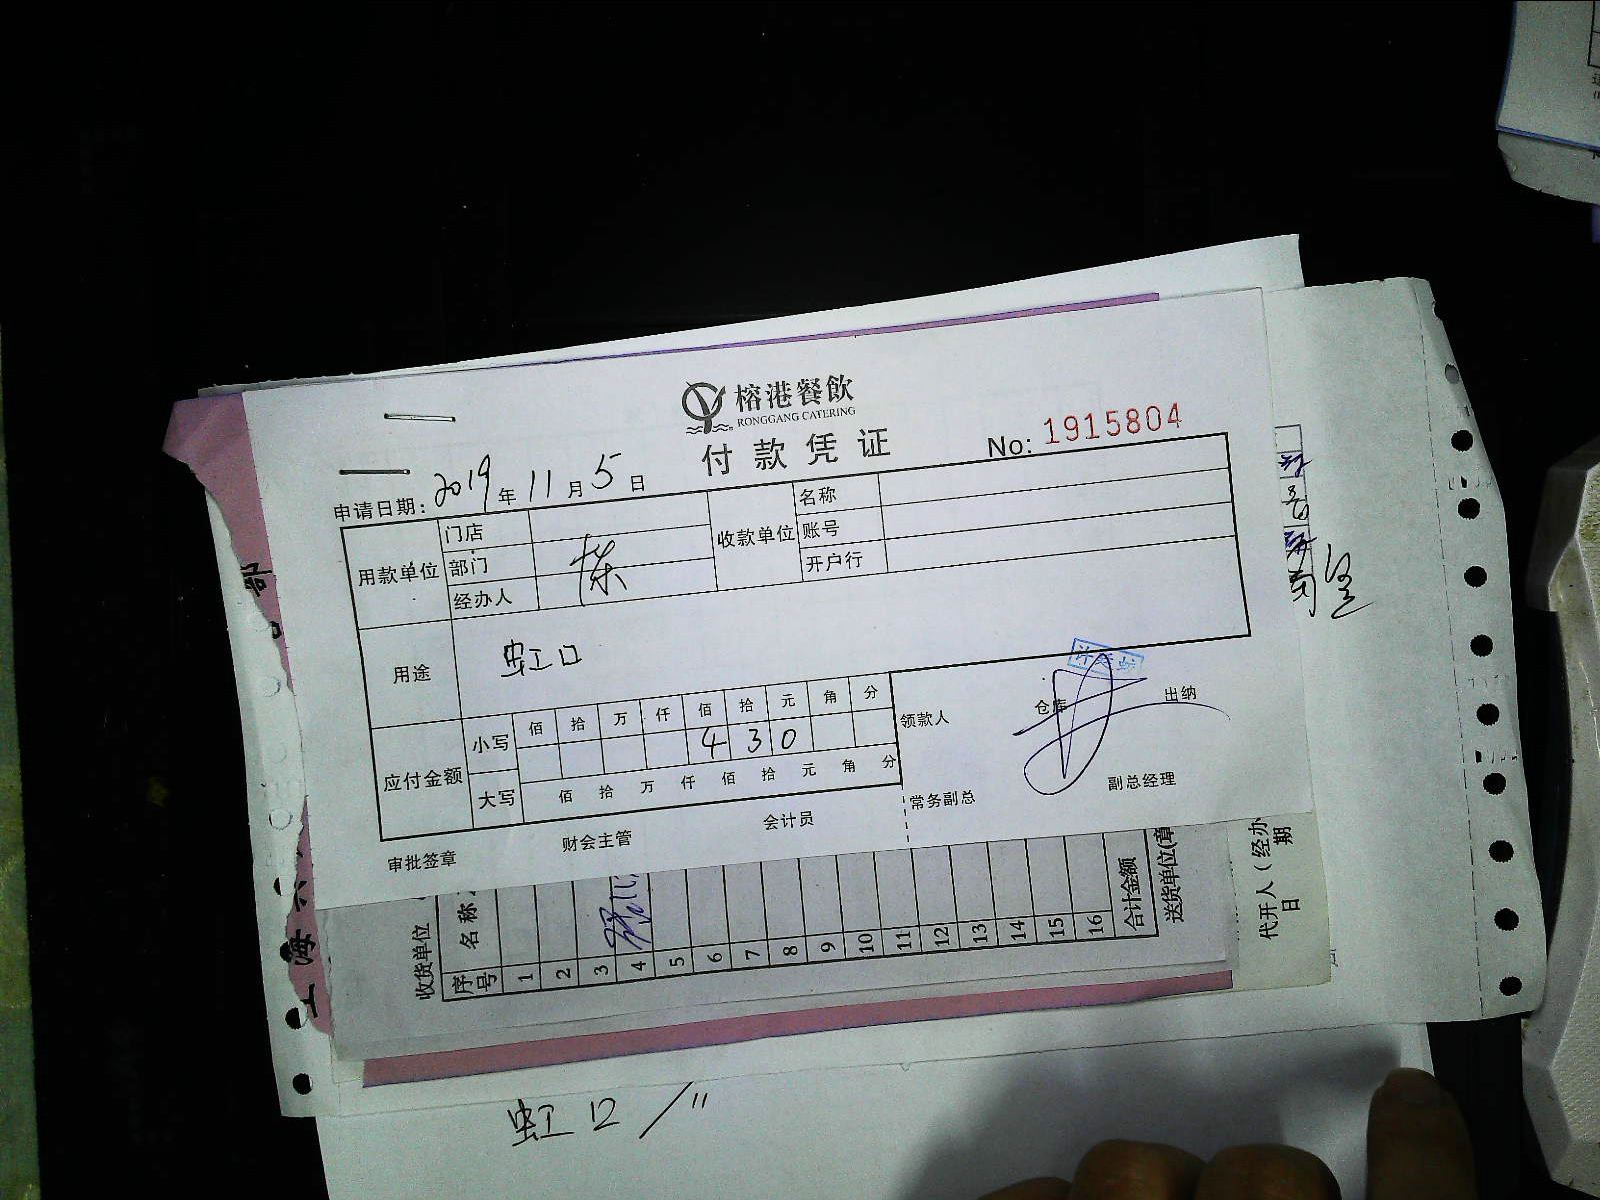 榕港餐飲
RONGGANG CATERING
付款凭证
No: 1915804
申请日期: 2019 年 11 月 5 日
用款单位 门店 收款单位 名称
部门 账号
经办人 开户行
用途 虹口
应付金额 小写 佰 拾 万 仟 佰 拾 元 角 分
4 3 0
大写 佰 拾 万 仟 佰 拾 元 角 分
领款人 仓库 出纳
常务副总 副总经理
审批签章 财会主管 会计员
收货单位
序号 名称
1 2 3 4 5 6 7 8 9 10 11 12 13 14 15 16
合计金额
送货单位(章
代开人(经办
日期
上海
虹口